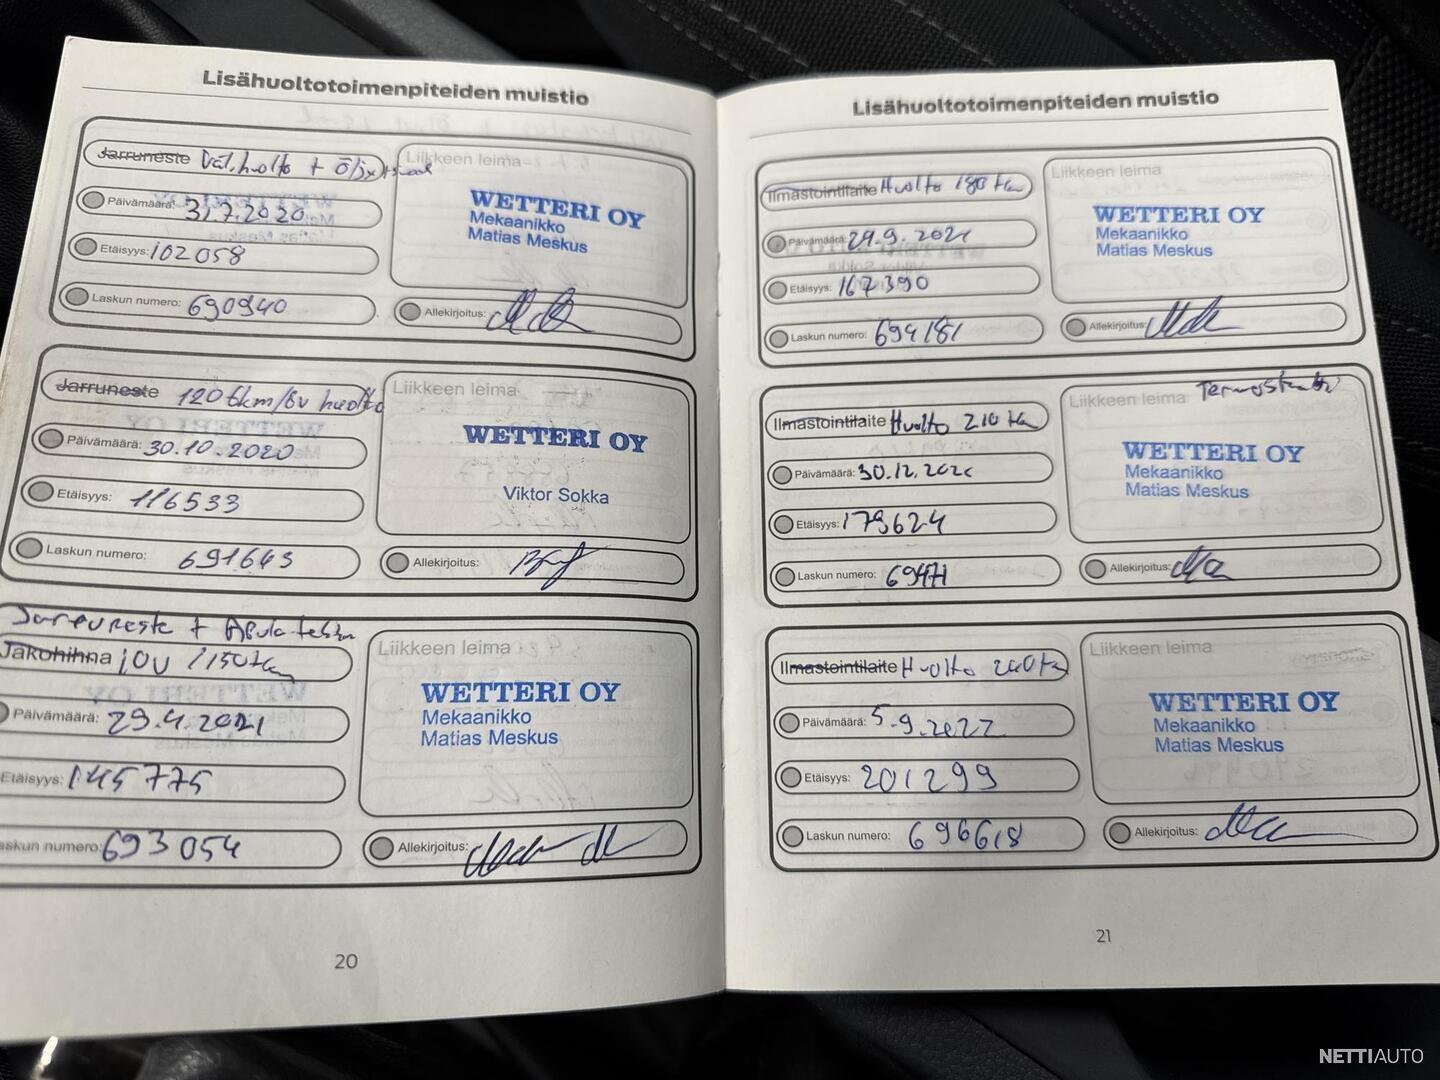 Lisähuoltotoimenpiteiden muistio
Jarruneste Väl.huolto + Öljyt
Liikkeen leima
WETTERI OY
Mekaanikko
Matias Meskus
Päivämäärä: 31.7.2020
Etäisyys: 102058
Laskun numero: 690940
Allekirjoitus:
Jarruneste 120tkm/6v huolto
Liikkeen leima
WETTERI OY
Viktor Sokka
Päivämäärä: 30.10.2020
Etäisyys: 116533
Laskun numero: 691643
Allekirjoitus:
Jarruneste +
Jakohihna 10v /150tkm
Liikkeen leima
WETTERI OY
Mekaanikko
Matias Meskus
Päivämäärä: 29.4.2021
Etäisyys: 145775
Laskun numero: 693054
Allekirjoitus:
20
Lisähuoltotoimenpiteiden muistio
Ilmastointilaite Huolto 180 tkm
Liikkeen leima
WETTERI OY
Mekaanikko
Matias Meskus
Päivämäärä: 29.9.2021
Etäisyys: 167390
Laskun numero: 694181
Allekirjoitus:
Ilmastointilaite Huolto 210 tkm
Liikkeen leima Termostaatti
WETTERI OY
Mekaanikko
Matias Meskus
Päivämäärä: 30.12.2021
Etäisyys: 179624
Laskun numero:
Allekirjoitus:
Ilmastointilaite Huolto 240 tkm
Liikkeen leima
WETTERI OY
Mekaanikko
Matias Meskus
Päivämäärä: 5.9.2022
Etäisyys: 201299
Laskun numero: 696618
Allekirjoitus:
21
NETTIAUTO